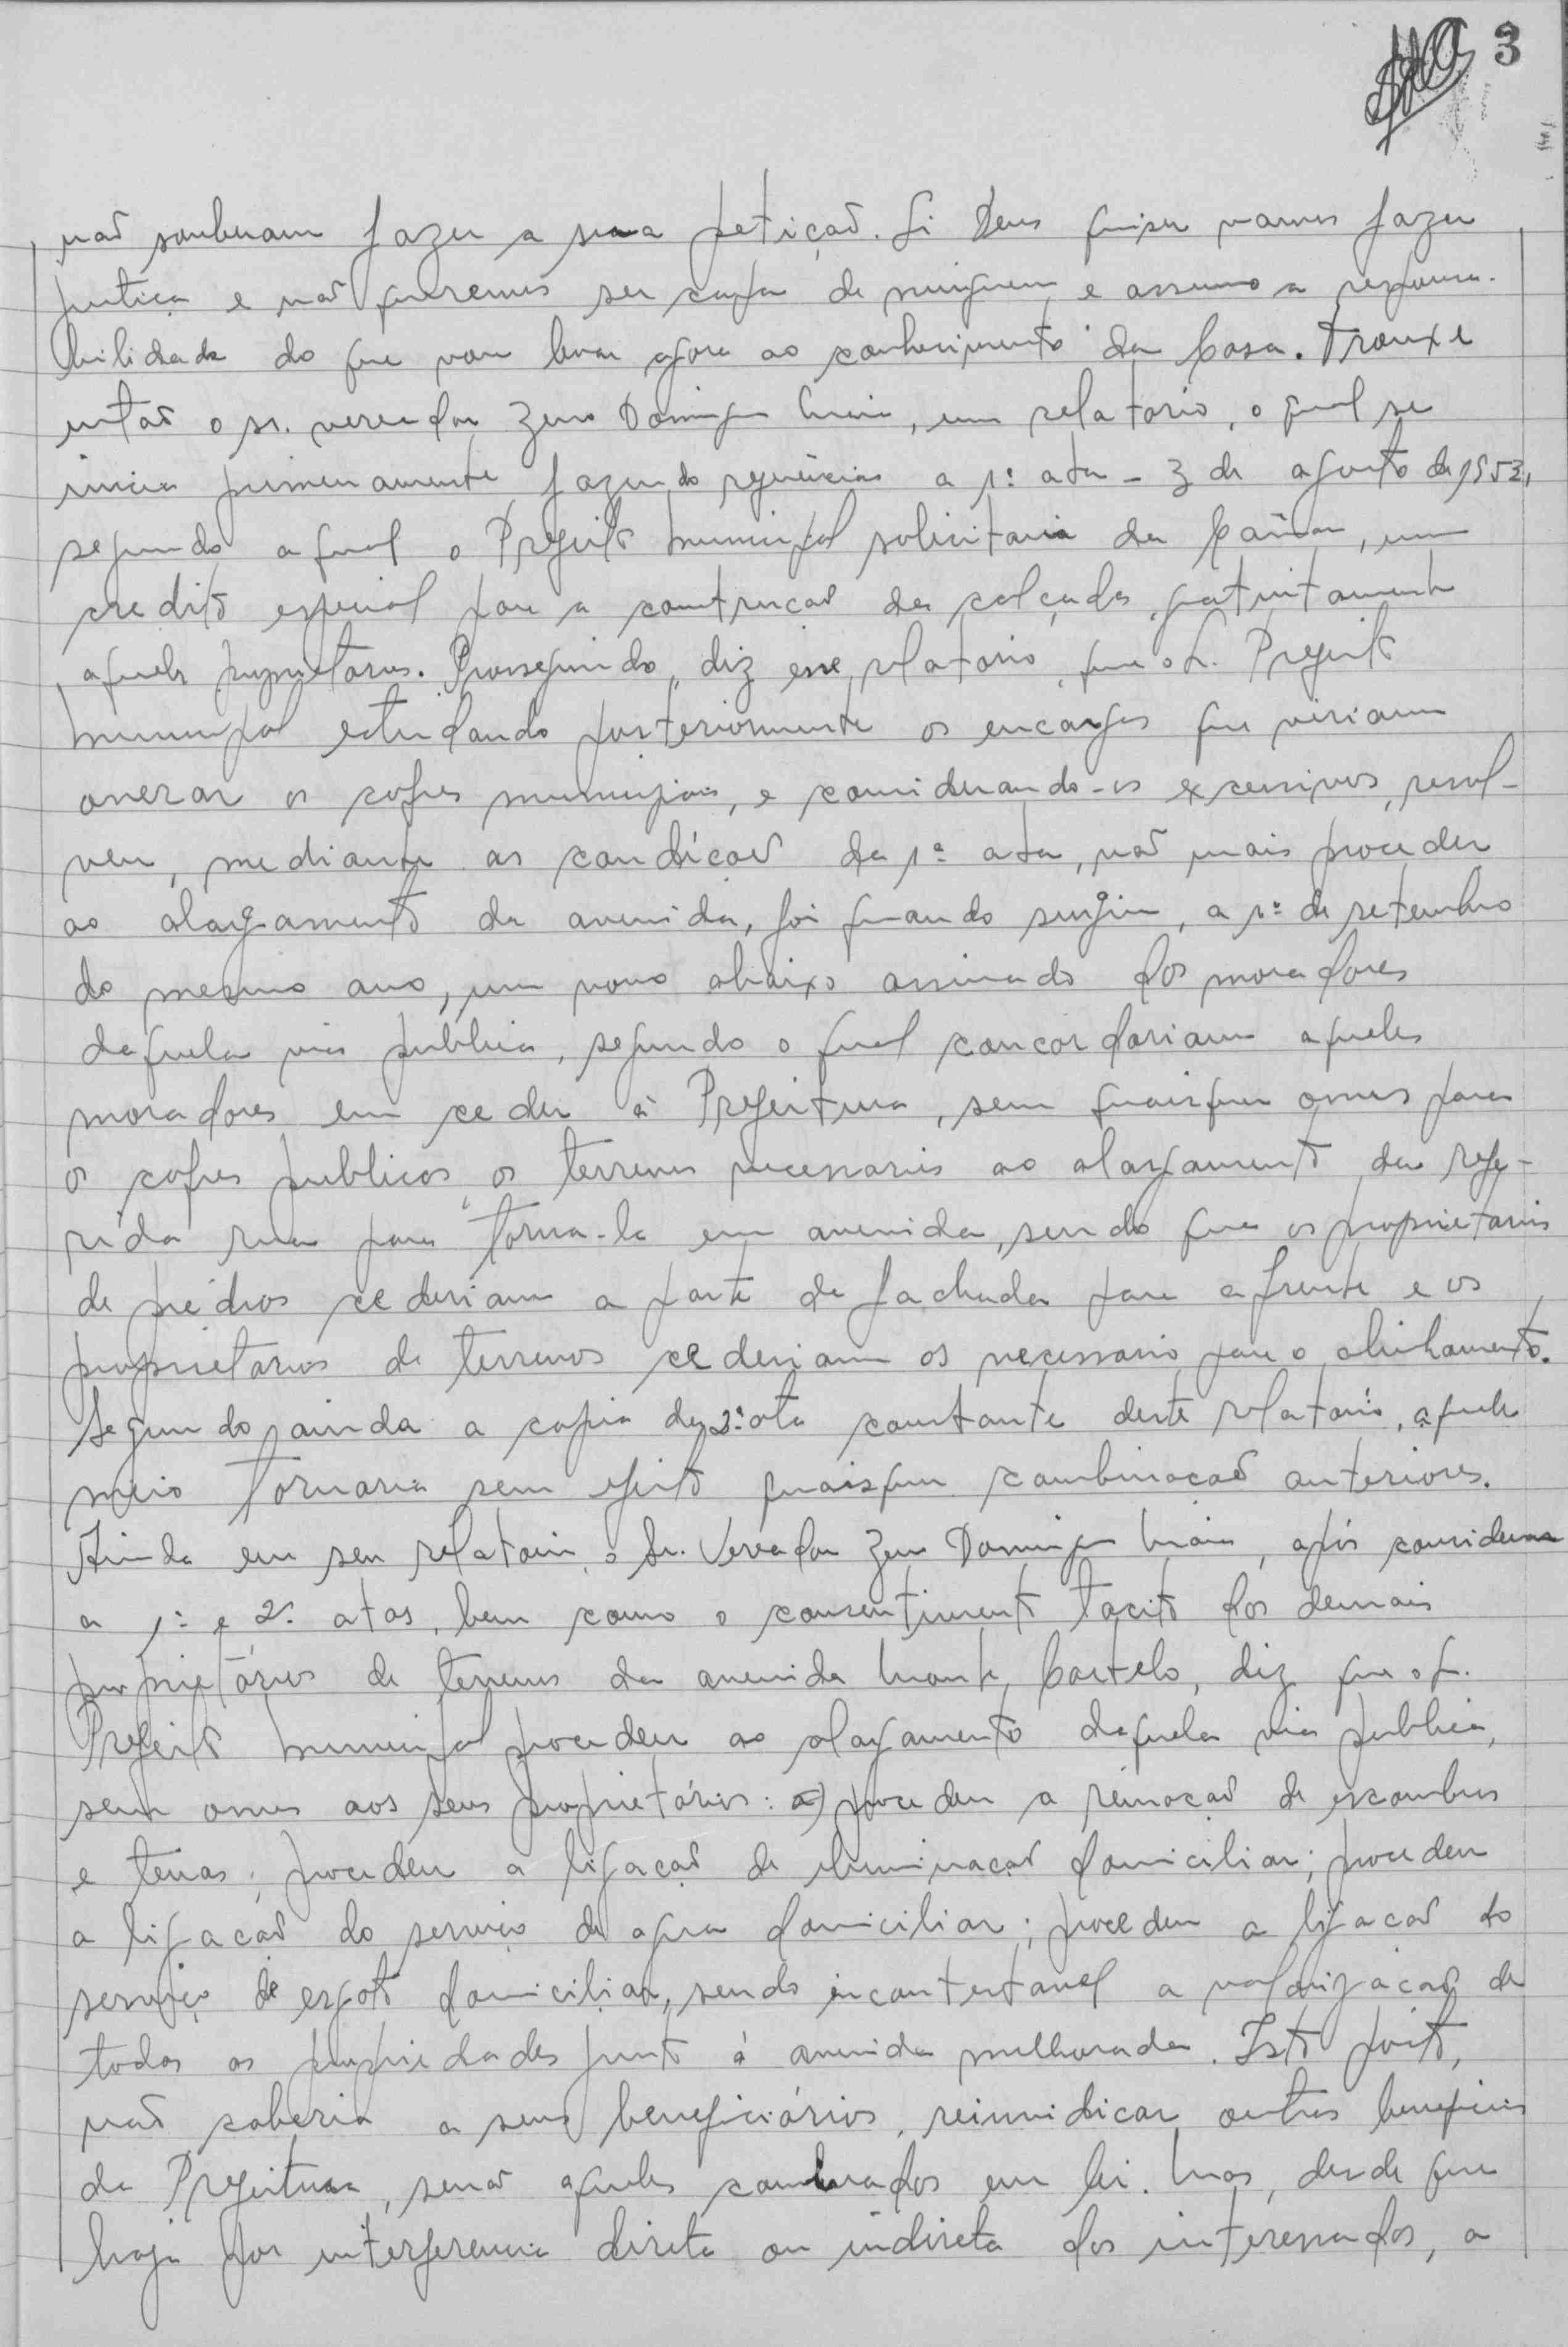 3
não souberam fazer a sua petição. Si Deus quiser vamos fazer
justiça e não queremos ser capa de ninguem e assumo a responsa-
bilidade do que vou levar agora ao conhecimento da Casa. Trouxe
então o sr. vereador Zeno Domingues Maia, um relatorio, o qual se
inicia primeiramente fazendo referências a 1ª ata - 3 de agosto de 1953,
segundo a qual o Prefeito Municipal solicitaria da Câmara, um
credito especial para a construção das calçadas, gratuitamente
aqueles proprietarios. Prosseguindo, diz esse relatorio, que o Sr. Prefeito
Municipal estudando posteriormente os encargos que viriam
onerar os cofres municipais, e considerando-os excessivos, resol-
veu, mediante as condições da 1ª ata, não mais proceder
ao alargamento da avenida, foi quando surgiu, a 1º de setembro
do mesmo ano, um novo abaixo assinado dos moradores
daquela via pública, segundo o qual concordariam aqueles
moradores em ceder à Prefeitura, sem quaisquer onus para
os cofres publicos, os terrenos necessarios ao alargamento da refe-
rida rua para torna-la em avenida, sendo que os proprietarios
de prédios cederiam a parte da fachada para a frente e os
proprietarios de terrenos cederiam os necessario para o alinhamento.
Segundo ainda a copia da 2ª ata constante deste relatorio, aquele
meio tornaria sem efeito quaisquer combinações anteriores.
Ainda em seu relatorio, o Sr. Vereador Zeno Domingues Maia, após considerar
a 1ª e 2ª atas, bem como o consentimento tacito dos demais
proprietários de terrenos da avenida Monte Castelo, diz que o Sr.
Prefeito Municipal procedeu ao alargamento daquela via publica,
sem onus aos seus proprietários: a) procedeu a remoção de escombros
e terras; procedeu a ligação de iluminação domiciliar; procedeu
a ligação do serviço de agua domiciliar; procedeu a ligação do
serviço de esgoto domiciliar, sendo incontestavel a valorização de
todas as propriedades junto á avenida melhorada. Isto posto,
não caberia a seus beneficiários, reinvidicar outros beneficios
da Prefeitura, senão aqueles combinados em lei. Mas, desde que
haja por interferencia direta ou indireta dos interessados, a